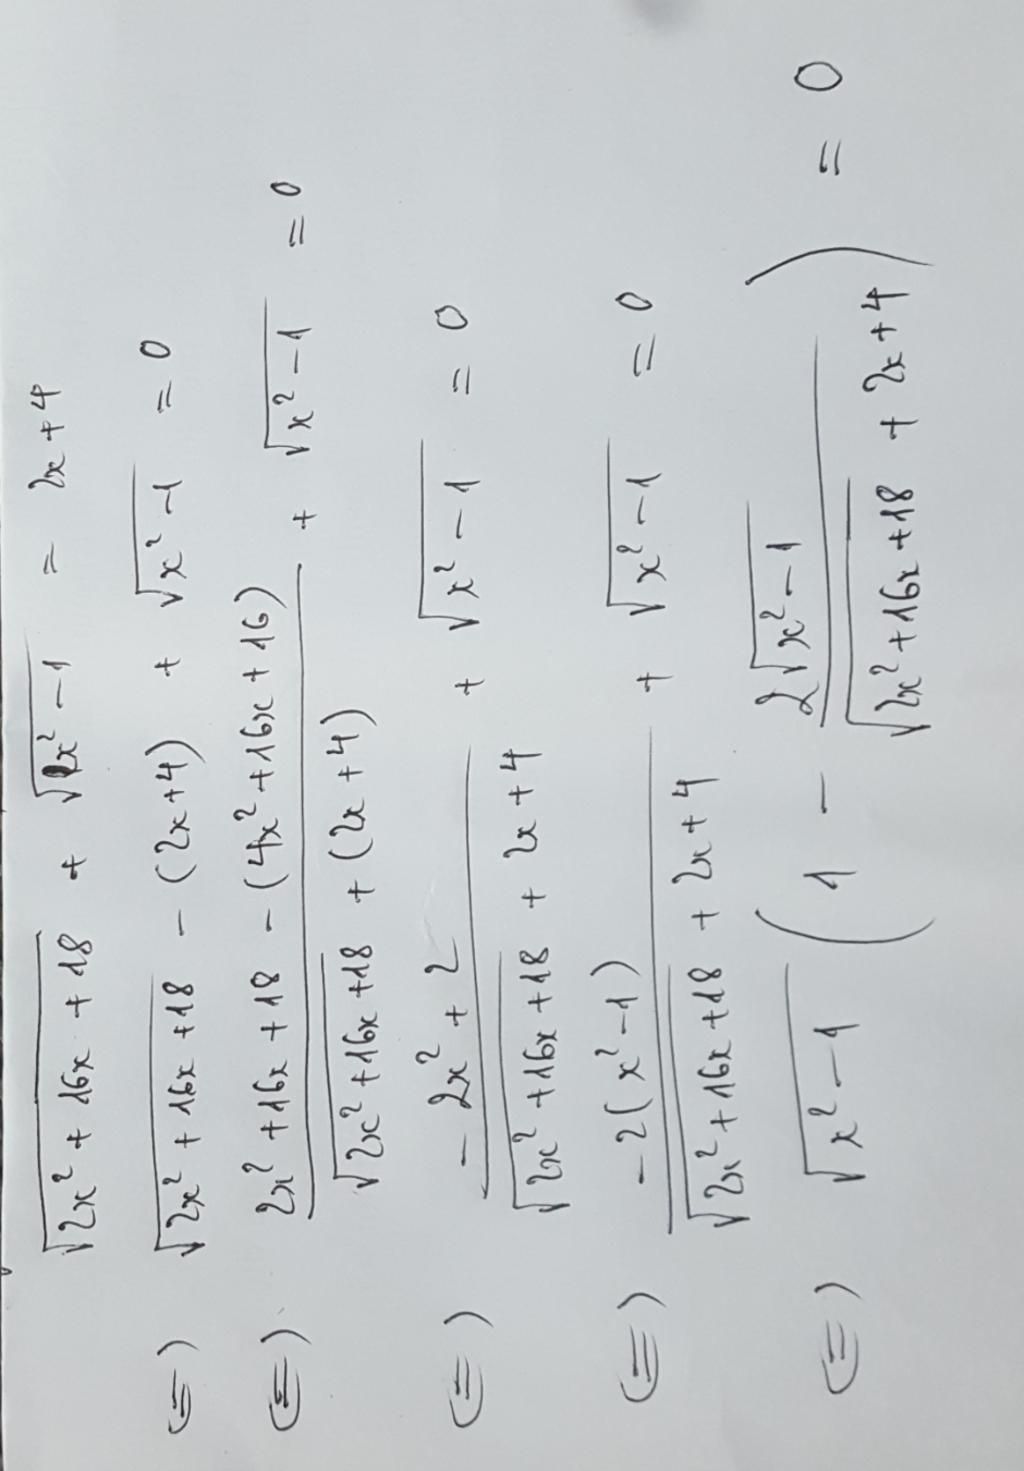 √(2x² + 16x + 18) + √(x² - 1) = 2x + 4
(=) √(2x² + 16x + 18) - (2x + 4) + √(x² - 1) = 0
(=) (2x² + 16x + 18 - (4x² + 16x + 16)) / (√(2x² + 16x + 18) + (2x + 4)) + √(x² - 1) = 0
(=) (-2x² + 2) / (√(2x² + 16x + 18) + 2x + 4) + √(x² - 1) = 0
(=) (-2(x² - 1)) / (√(2x² + 16x + 18) + 2x + 4) + √(x² - 1) = 0
(=) √(x² - 1) (1 - (2√(x² - 1)) / (√(2x² + 16x + 18) + 2x + 4)) = 0